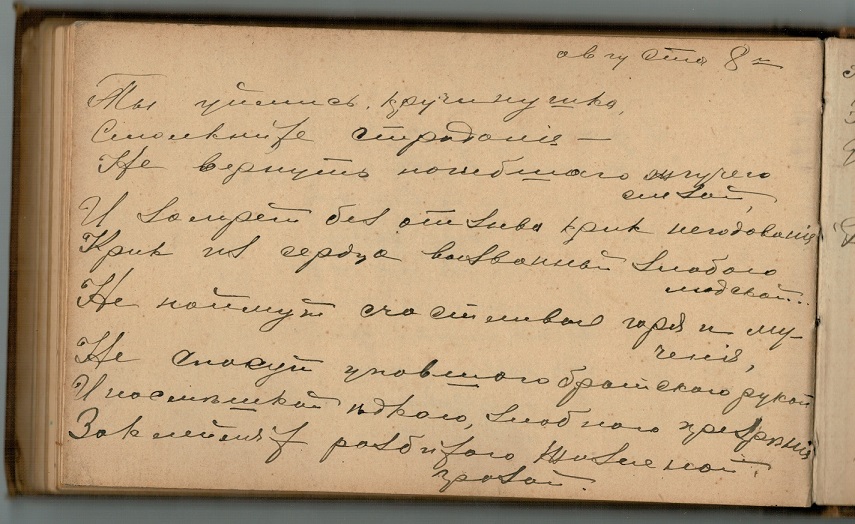 августа 8 н
Ты уймись, кручинушка,
Смолкните страданія —
Не вернуть погибшаго жгучею
слезой,
И замрет без отзыва крик негодованія
Крик из сердца вызванный злобою
людской...
Не поймут счастливые горя и му-
ченія,
Не спасут упавшаго братскою рукой
И насмѣшкой ѣдкою, злобного презрѣнія
Заклеймят разбитаго жизненной
грозой.